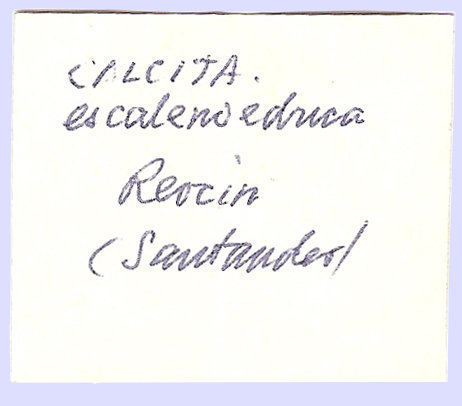 CALCITA.
escalenoedrica
Reocin
(Santander)